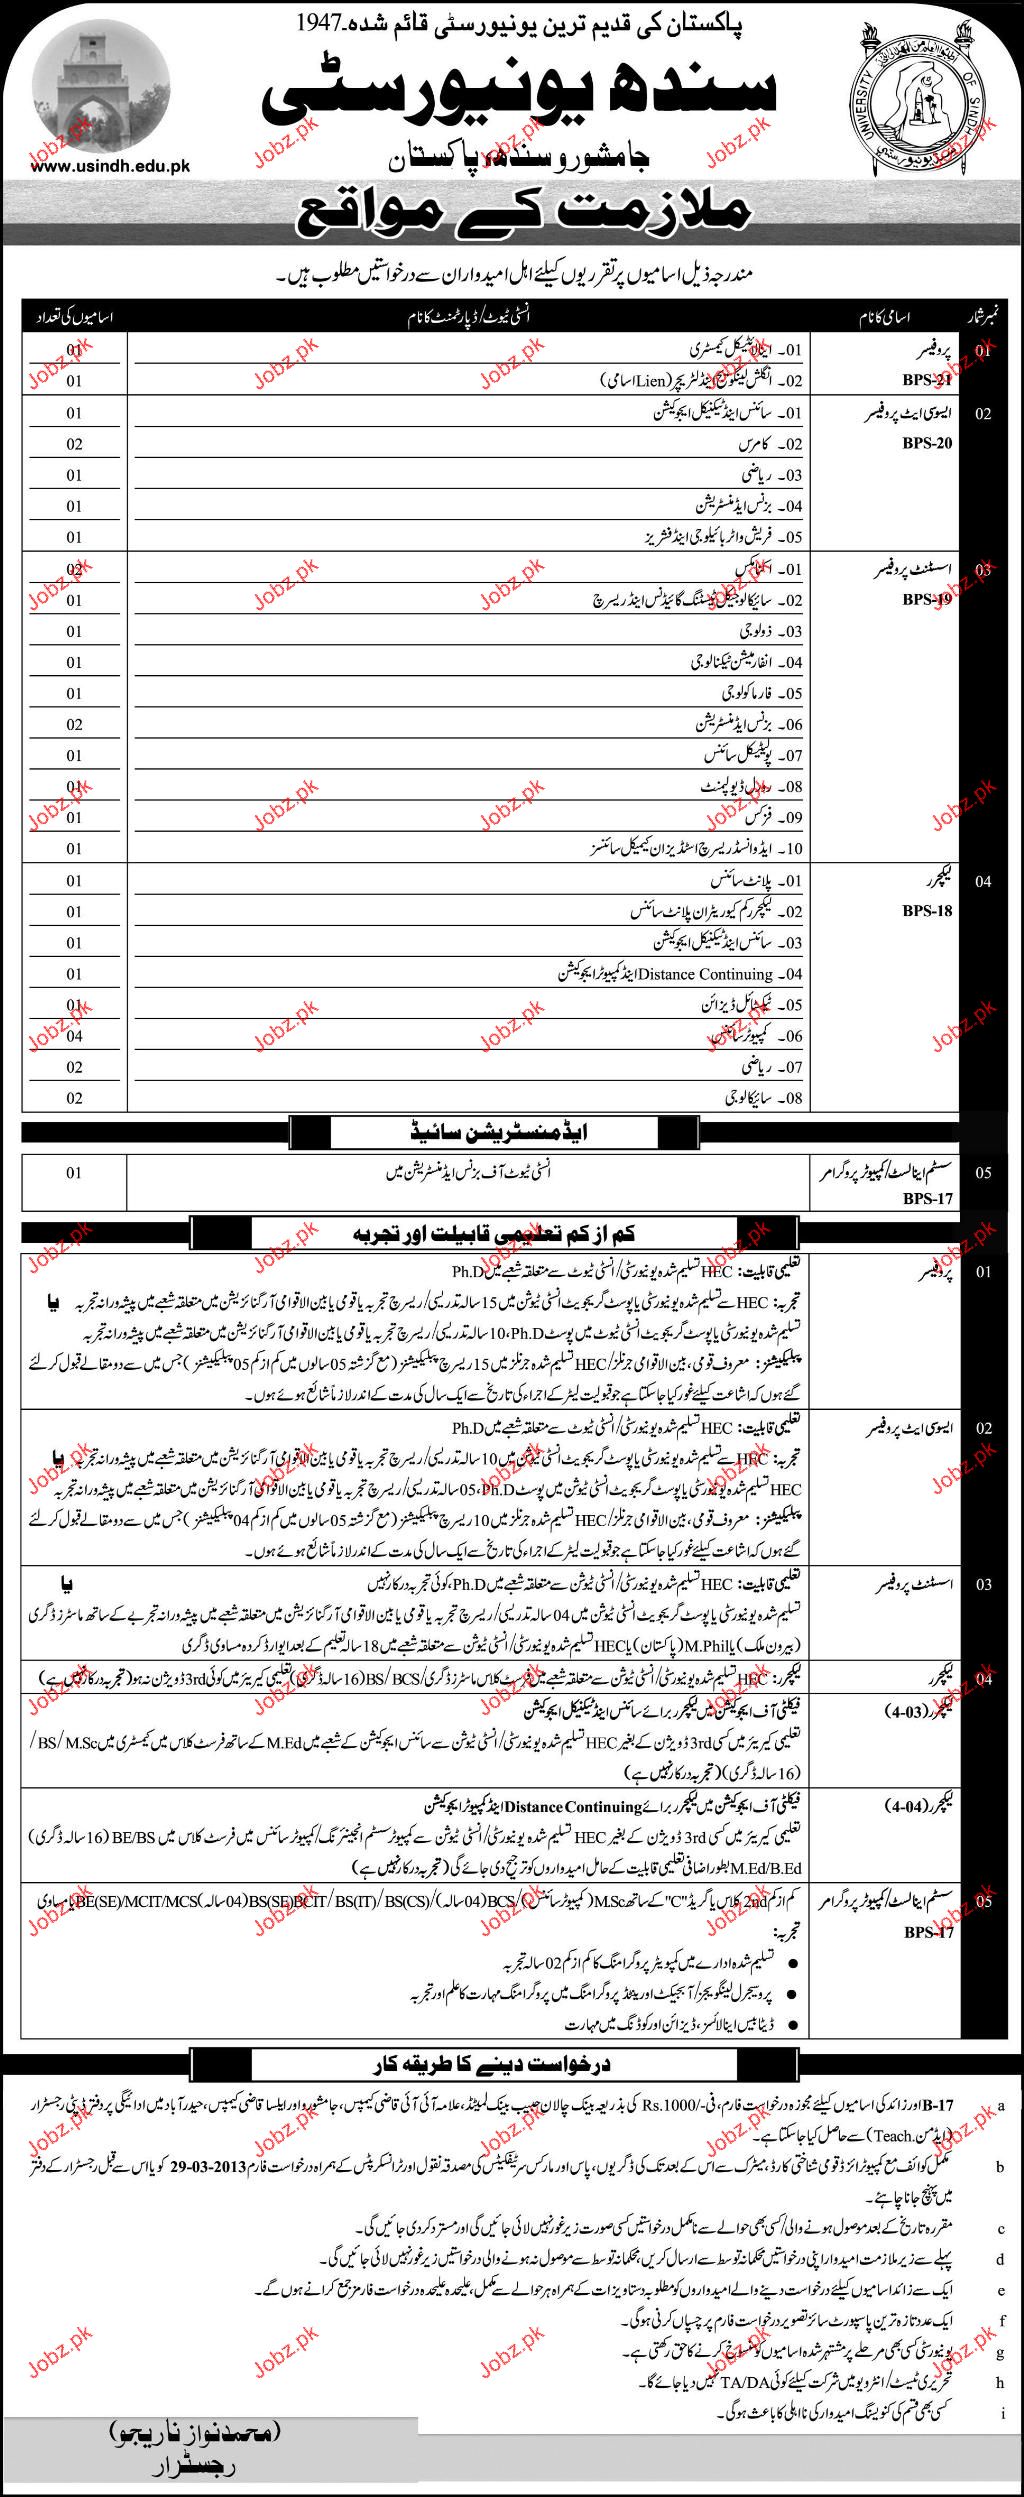 پاکستان کی قدیم ترین یونیورسٹی قائم شدہ۔1947
سندھ یونیورسٹی
جامشورو سندھ پاکستان
www.usindh.edu.pk
UNIVERSITY OF SINDH
ملازمت کے مواقع
مندرجہ ذیل اسامیوں پر تقرریوں کیلئے اہل امیدواران سے درخواستیں مطلوب ہیں۔
نمبر شمار اسامی کا نام انسٹی ٹیوٹ/ڈپارٹمنٹ کا نام اسامیوں کی تعداد
01 پروفیسر 01۔ اینالائٹیکل کیمسٹری 01
BPS-21 02۔ انگلش لینگویج اینڈ لٹریچر (Lien اسامی) 01
02 ایسوسی ایٹ پروفیسر 01۔ سائنس اینڈ ٹیکنیکل ایجوکیشن 01
BPS-20 02۔ کامرس 02
03۔ ریاضی 01
04۔ بزنس ایڈمنسٹریشن 01
05۔ فریش واٹر بائیلوجی اینڈ فشریز 01
03 اسسٹنٹ پروفیسر 01۔ اکنامکس 02
BPS-19 02۔ سائیکالوجیکل ٹیسٹنگ گائیڈنس اینڈ ریسرچ 01
03۔ ذولوجی 01
04۔ انفارمیشن ٹیکنالوجی 01
05۔ فارماکولوجی 01
06۔ بزنس ایڈمنسٹریشن 02
07۔ پولیٹیکل سائنس 01
08۔ رورل ڈیولپمنٹ 01
09۔ فزکس 01
10۔ ایڈوانسڈ ریسرچ اسٹڈیز ان کیمیکل سائنسز 01
04 لیکچرر 01۔ پلانٹ سائنس 01
BPS-18 02۔ لیکچرر کم کیوریٹر ان پلانٹ سائنس 01
03۔ سائنس اینڈ ٹیکنیکل ایجوکیشن 01
04۔ Distance Continuing اینڈ کمپیوٹر ایجوکیشن 01
05۔ ٹیکسٹائل ڈیزائن 01
06۔ کمپیوٹر سائنس 04
07۔ ریاضی 02
08۔ سائیکالوجی 02
ایڈمنسٹریشن سائیڈ
05 سسٹم اینالسٹ/کمپیوٹر پروگرامر انسٹی ٹیوٹ آف بزنس ایڈمنسٹریشن میں 01
BPS-17
کم از کم تعلیمی قابیلت اور تجربہ
01 پروفیسر تعلیمی قابلیت: HEC تسلیم شدہ یونیورسٹی/انسٹی ٹیوٹ سے متعلقہ شعبے میں Ph.D
تجربہ: HEC سے تسلیم شدہ یونیورسٹی یا پوسٹ گریجویٹ انسٹی ٹیوشن میں 15 سالہ تدریسی/ریسرچ تجربہ یا قومی یا بین الاقوامی آرگنائزیشن میں متعلقہ شعبے میں پیشہ ورانہ تجربہ یا
تسلیم شدہ یونیورسٹی یا پوسٹ گریجویٹ انسٹی ٹیوٹ میں پوسٹ Ph.D، 10 سالہ تدریسی/ریسرچ تجربہ یا قومی یا بین الاقوامی آرگنائزیشن میں متعلقہ شعبے میں پیشہ ورانہ تجربہ
پبلیکیشنز: معروف قومی، بین الاقوامی جرنلز/HEC تسلیم شدہ جرنلز میں 15 ریسرچ پبلیکیشنز (مع گزشتہ 05 سالوں میں کم از کم 05 پبلیکیشنز) جس میں سے دو مقالے قبول کر لئے
گئے ہوں کہ اشاعت کیلئے غور کیا جاسکتا ہے جو قبولیت لیٹر کے اجراء کی تاریخ سے ایک سال کی مدت کے اندر لازماً شائع ہوئے ہوں۔
02 ایسوسی ایٹ پروفیسر تعلیمی قابلیت: HEC تسلیم شدہ یونیورسٹی/انسٹی ٹیوٹ سے متعلقہ شعبے میں Ph.D
تجربہ: HEC سے تسلیم شدہ یونیورسٹی یا پوسٹ گریجویٹ انسٹی ٹیوشن میں 10 سالہ تدریسی/ریسرچ تجربہ یا قومی یا بین الاقوامی آرگنائزیشن میں متعلقہ شعبے میں پیشہ ورانہ تجربہ یا
HEC تسلیم شدہ یونیورسٹی یا پوسٹ گریجویٹ انسٹی ٹیوشن میں پوسٹ Ph.D، 05 سالہ تدریسی/ریسرچ تجربہ یا قومی یا بین الاقوامی آرگنائزیشن میں متعلقہ شعبے میں پیشہ ورانہ تجربہ
پبلیکیشنز: معروف قومی، بین الاقوامی جرنلز/HEC تسلیم شدہ جرنلز میں 10 ریسرچ پبلیکیشنز (مع گزشتہ 05 سالوں میں کم از کم 04 پبلیکیشنز) جس میں سے دو مقالے قبول کر لئے
گئے ہوں کہ اشاعت کیلئے غور کیا جاسکتا ہے جو قبولیت لیٹر کے اجراء کی تاریخ سے ایک سال کی مدت کے اندر لازماً شائع ہوئے ہوں۔
03 اسسٹنٹ پروفیسر تعلیمی قابلیت: HEC تسلیم شدہ یونیورسٹی/انسٹی ٹیوشن سے متعلقہ شعبے میں Ph.D، کوئی تجربہ درکار نہیں یا
تسلیم شدہ یونیورسٹی یا پوسٹ گریجویٹ انسٹی ٹیوشن میں 04 سالہ تدریسی/ریسرچ تجربہ یا قومی یا بین الاقوامی آرگنائزیشن میں متعلقہ شعبے میں پیشہ ورانہ تجربے کے ساتھ ماسٹرز ڈگری
(بیرون ملک) یا M.Phil (پاکستان) یا HEC تسلیم شدہ یونیورسٹی/انسٹی ٹیوشن سے متعلقہ شعبے میں 18 سالہ تعلیم کے بعد ایوارڈ کردہ مساوی ڈگری
04 لیکچرر لیکچرر: HEC تسلیم شدہ یونیورسٹی/انسٹی ٹیوشن سے متعلقہ شعبے میں فرسٹ کلاس ماسٹرز ڈگری/BS/ BCS (16 سالہ ڈگری) تعلیمی کیریئر میں کوئی 3rd ڈویژن نہ ہو (تجربہ درکار نہیں ہے)
لیکچرر (4-03) فیکلٹی آف ایجوکیشن میں لیکچرر برائے سائنس اینڈ ٹیکنیکل ایجوکیشن
تعلیمی کیریئر میں کسی 3rd ڈویژن کے بغیر HEC تسلیم شدہ یونیورسٹی/انسٹی ٹیوشن سے سائنس ایجوکیشن کے شعبے میں M.Ed کے ساتھ فرسٹ کلاس میں کیمسٹری میں BS/ M.Sc/
(16 سالہ ڈگری) (تجربہ درکار نہیں ہے)
لیکچرر (4-04) فیکلٹی آف ایجوکیشن میں لیکچرر برائے Distance Continuing اینڈ کمپیوٹر ایجوکیشن
تعلیمی کیریئر میں کسی 3rd ڈویژن کے بغیر HEC تسلیم شدہ یونیورسٹی/انسٹی ٹیوشن سے کمپیوٹر سسٹم انجینئرنگ/کمپیوٹر سائنس میں فرسٹ کلاس میں BE/BS (16 سالہ ڈگری)
M.Ed/B.Ed بطور اضافی تعلیمی قابلیت کے حامل امیدواروں کو ترجیح دی جائے گی (تجربہ درکار نہیں ہے)
05 سسٹم اینالسٹ/کمپیوٹر پروگرامر کم از کم 2nd کلاس یا گریڈ "C" کے ساتھ M.Sc (کمپیوٹر سائنس)/BCS (04 سالہ)/BS(SE)BCIT/ BS(IT)/ BS(CS) (04 سالہ) BE(SE)/MCIT/MCS یا مساوی
BPS-17 تجربہ:
● تسلیم شدہ ادارے میں کمپیوٹر پروگرامنگ کا کم از کم 02 سالہ تجربہ
● پروسیجرل لینگویجز/آبجیکٹ اورینٹڈ پروگرامنگ میں پروگرامنگ مہارت کا علم اور تجربہ
● ڈیٹا بیس اینالائسز، ڈیزائن اور کوڈنگ میں مہارت
درخواست دینے کا طریقہ کار
a B-17 اور زائد کی اسامیوں کیلئے مجوزہ درخواست فارم، فی -/Rs.1000 کی بذریعہ بینک چالان حبیب بینک لمیٹڈ، علامہ آئی آئی قاضی کیمپس، جامشورو اور ایلسا قاضی کیمپس، حیدرآباد میں ادائیگی پر دفتر ڈپٹی رجسٹرار
(ایڈمن Teach.) سے حاصل کیا جاسکتا ہے۔
b مکمل کوائف مع کمپیوٹرائزڈ قومی شناختی کارڈ، میٹرک سے اس کے بعد تک کی ڈگریوں، پاس اور مارکس سرٹیفکیٹس کی مصدقہ نقول اور ٹرانسکرپٹس کے ہمراہ درخواست فارم 29-03-2013 کو یا اس سے قبل رجسٹرار کے دفتر
میں پہنچ جانا چاہئے۔
c مقررہ تاریخ کے بعد موصول ہونے والی/کسی بھی حوالے سے نامکمل درخواستیں کسی صورت زیر غور نہیں لائی جائیں گی اور مسترد کر دی جائیں گی۔
d پہلے سے زیر ملازمت امیدوار اپنی درخواستیں محکمانہ توسط سے ارسال کریں، محکمانہ توسط سے موصول نہ ہونے والی درخواستیں زیر غور نہیں لائی جائیں گی۔
e ایک سے زائد اسامیوں کیلئے درخواست دینے والے امیدواروں کو مطلوبہ دستاویزات کے ہمراہ ہر حوالے سے مکمل، علیحدہ علیحدہ درخواست فارمز جمع کرانے ہوں گے۔
f ایک عدد تازہ ترین پاسپورٹ سائز تصویر درخواست فارم پر چسپاں کرنی ہوگی۔
g یونیورسٹی کسی بھی مرحلے پر مشتہر شدہ اسامیوں کو منسوخ کرنے کا حق رکھتی ہے۔
h تحریری ٹیسٹ/انٹرویو میں شرکت کیلئے کوئی TA/DA نہیں دیا جائے گا۔
i کسی بھی قسم کی کنویسنگ امیدوار کی نااہلی کا باعث ہوگی۔
(محمد نواز ناریجو)
رجسٹرار
Jobz.pk